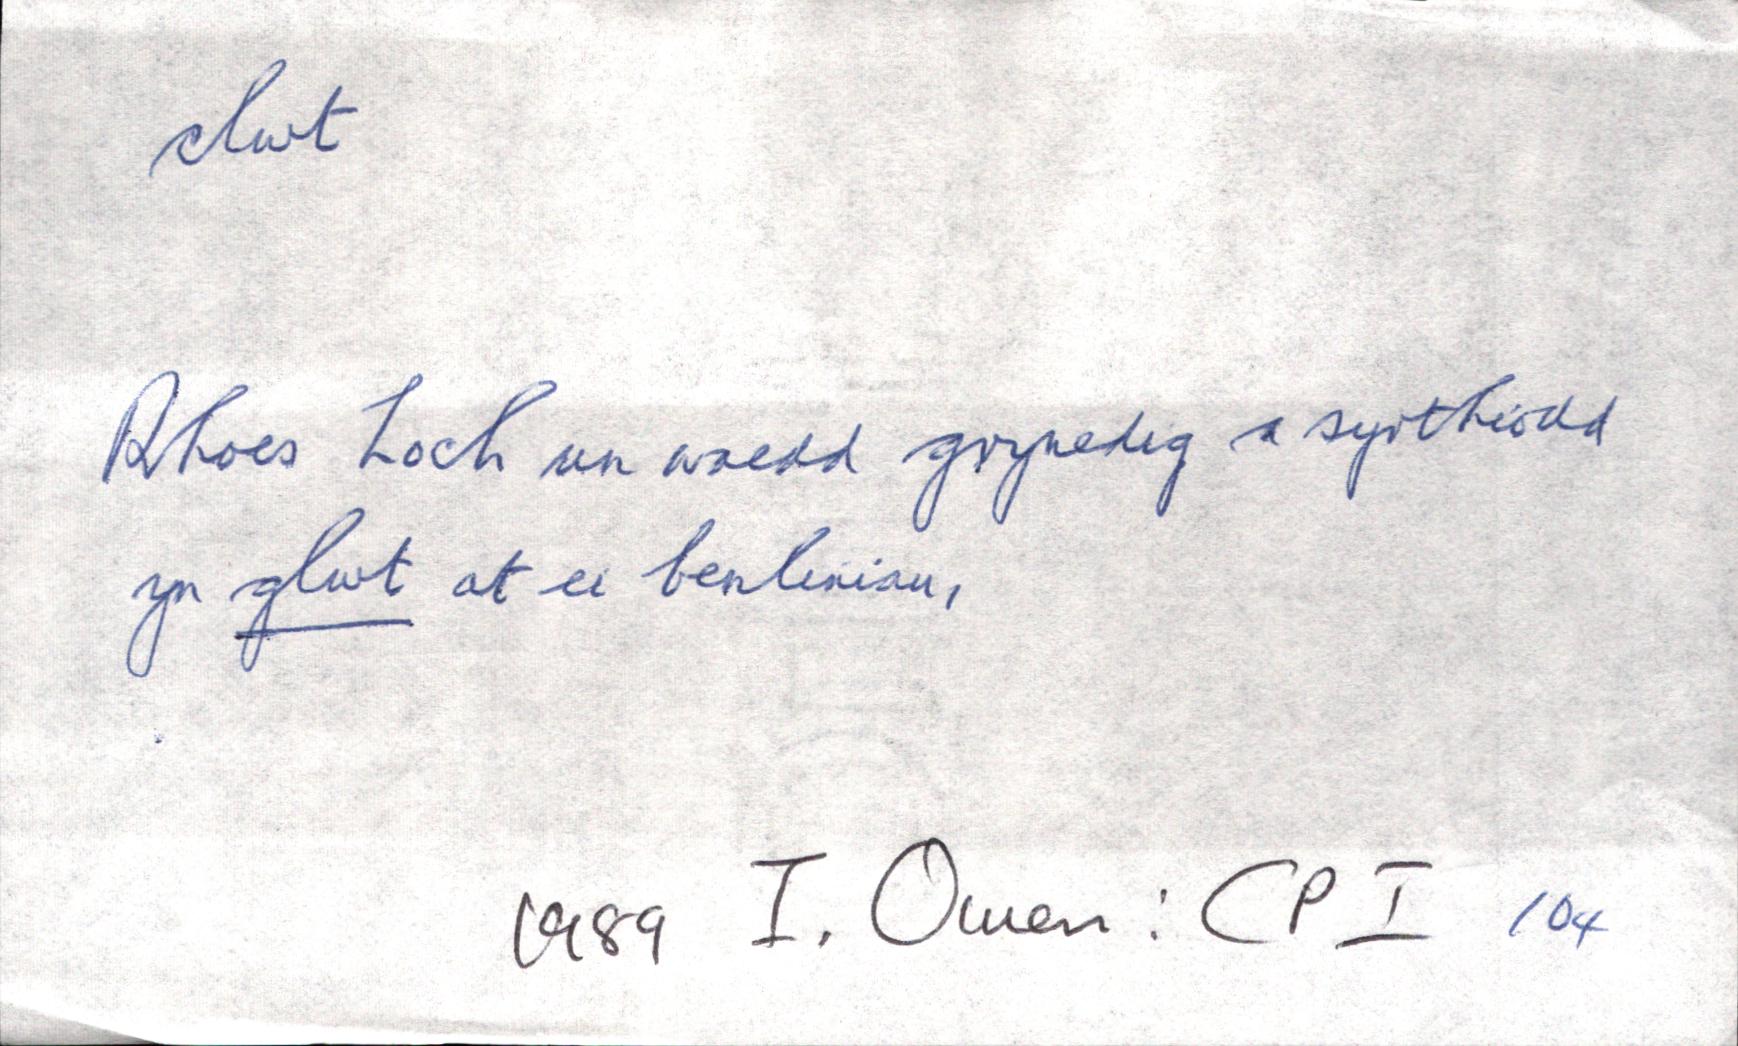 clwt
Rhoes Loch un waedd grynedig a syrthiodd
yn glwt at ei benliniau,
1989 I. Owen: CP I 104